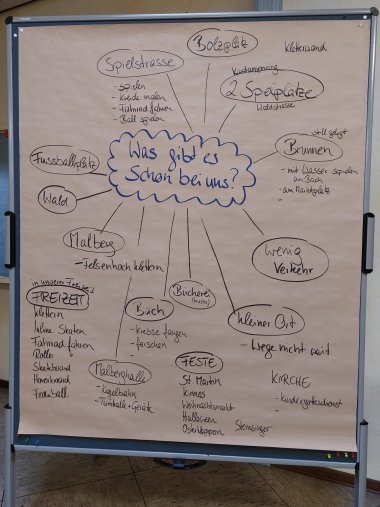 Bolzplatz
Kletterwand
Spielstrasse
- spielen
- Kreide malen
- Fahrrad fahren
- Ball spielen
2 Spielplätze
Waldstrasse
Was gibt es
Schon bei uns?
still gelegt
Brunnen
- mit Wasser spielen
am Bach
- am Marktplatz
-
Fussballplatz
Wald
Malberg
- Felsenhoch klettern
wenig
Verkehr
Bücherei
Bach
- Krebse fangen
- forschen
-
kleiner Ort
- Wege nicht weit
in unserer Freizeit
FREIZEIT
klettern
Inline Skaten
Fahrrad fahren
Roller
Skateboard
Hoverboard
Federball
Malberghalle
- Kegelbahn
- Turnhalle + Geräte
FESTE
St. Martin
Kirmes
Weihnachtsmarkt
Halloween
Osterklappern
Sternsinger
KIRCHE
- Kindergottesdienst
-